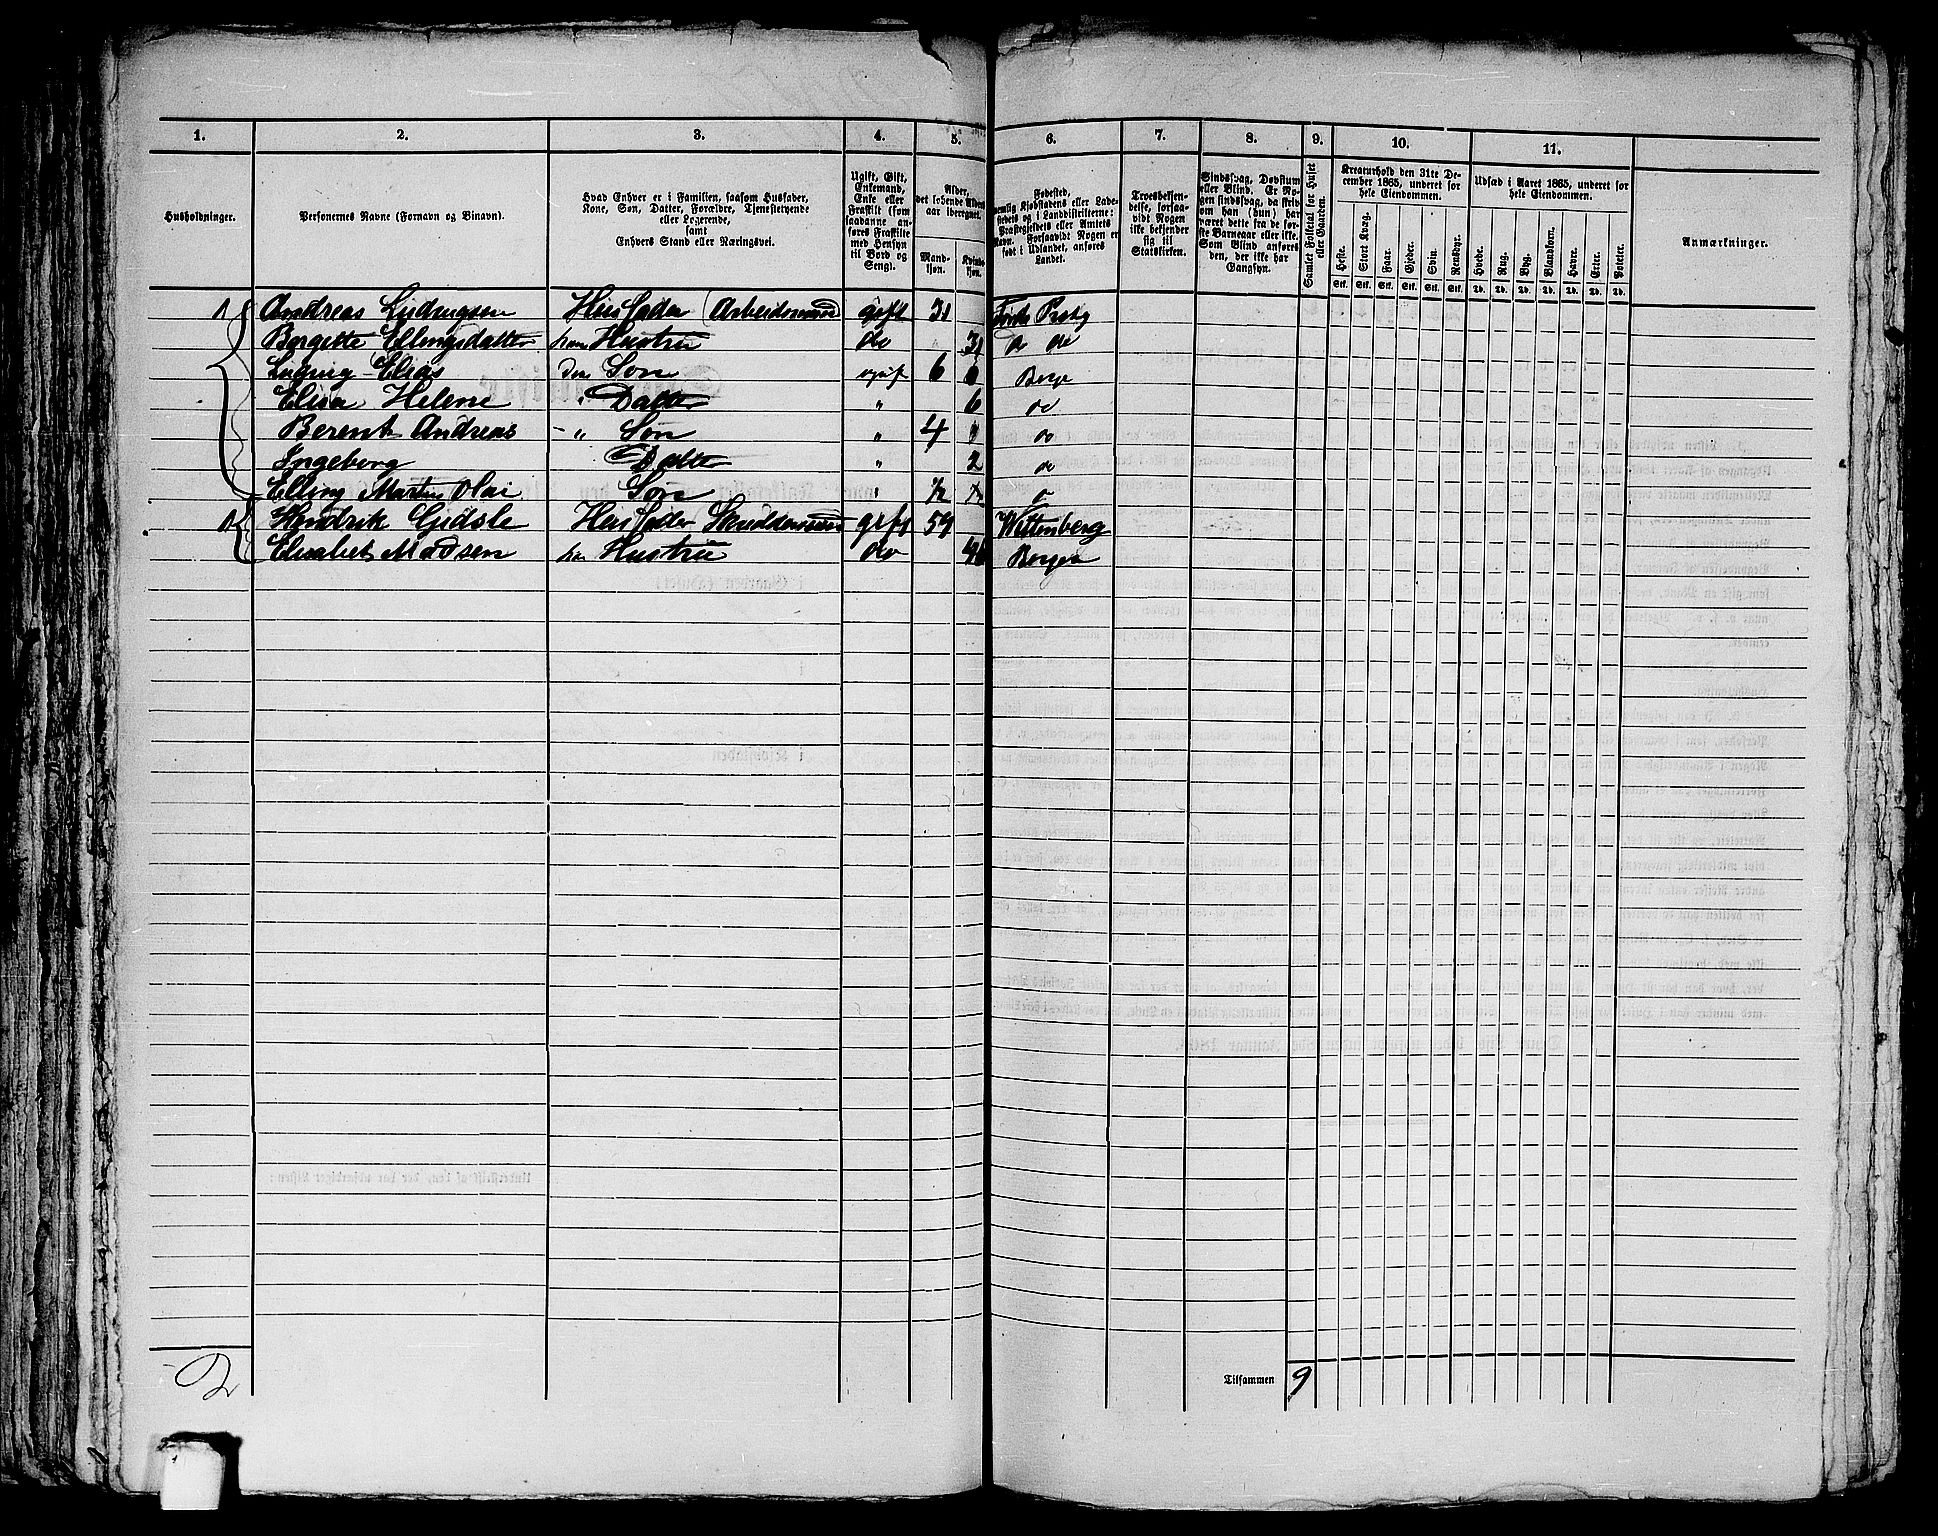 1. 2. 3. 4. 5. 6. 7. 8. 9. 10. 11.
Husholdninger.
Personernes Navne (Fornavn og Binavn).
Hvad Enhver er i Familien, saasom Husfader,
Kone, Søn, Datter, Forældre, Tjenstetyende
eller Logerende,
samt
Enhvers Stand eller Næringsvei.
Ugift, Gift,
Enkemand,
Enke eller
Fraskilt (som
saadanne an-
føres Fraskilte
med Hensyn
til Bord og
Seng).
Alder,
det løbende Alders-
aar iberegnet.
Mand-
kjøn.
Kvinde-
kjøn.
Fødested,
nemlig Kjøbstadens eller Lade-
stedets og i Landdistrikterne:
Præstegjeldets eller Amtets
Navn. Forsaavidt Nogen er
født i Udlandet, anføres
Landet.
Troesbekjen-
delse, forsaa-
vidt Nogen
ikke bekjender
sig til
Statskirken.
Sindssvag, Døvstum
eller Blind. Er No-
gen sindssvag, da skriv
om han (hun) har
været dette fra de før-
ste Barneaar eller ikke.
Som Blind anføres
den, der ikke har
Gangsyn.
Samlet Folketal for Huset
eller Gaarden.
Kreaturhold den 31te De-
cember 1865, underet for
hele Eiendommen.
Heste. Stort Kvæg. Faar. Gjeder. Svin. Rensdyr.
Stk. Stk. Stk. Stk. Stk. Stk.
Udsæd i Aaret 1865, underet for
hele Eiendommen.
Hvede. Rug. Byg. Blandkorn. Havre. Erter. Poteter.
Td. Td. Td. Td. Td. Td. Td.
Anmærkninger.
1 Andreas Ludvigsen Husfader (Arbeidsmand gift 31
Borgette Ellingsdatter hans Hustru do 31 do do
Ludvig Elias Søn ugift 6
Elisa Helene " Datter " 6 do
Berent Andreas " Søn " 4 do
Ingeborg Datter " 2 do
Elling Martin Olai Søn " 1/2
1 Hendrik Husfader gift 59 Wittenberg
Elisabet Madsen Hustru do Bergen
2
Tilsammen 9